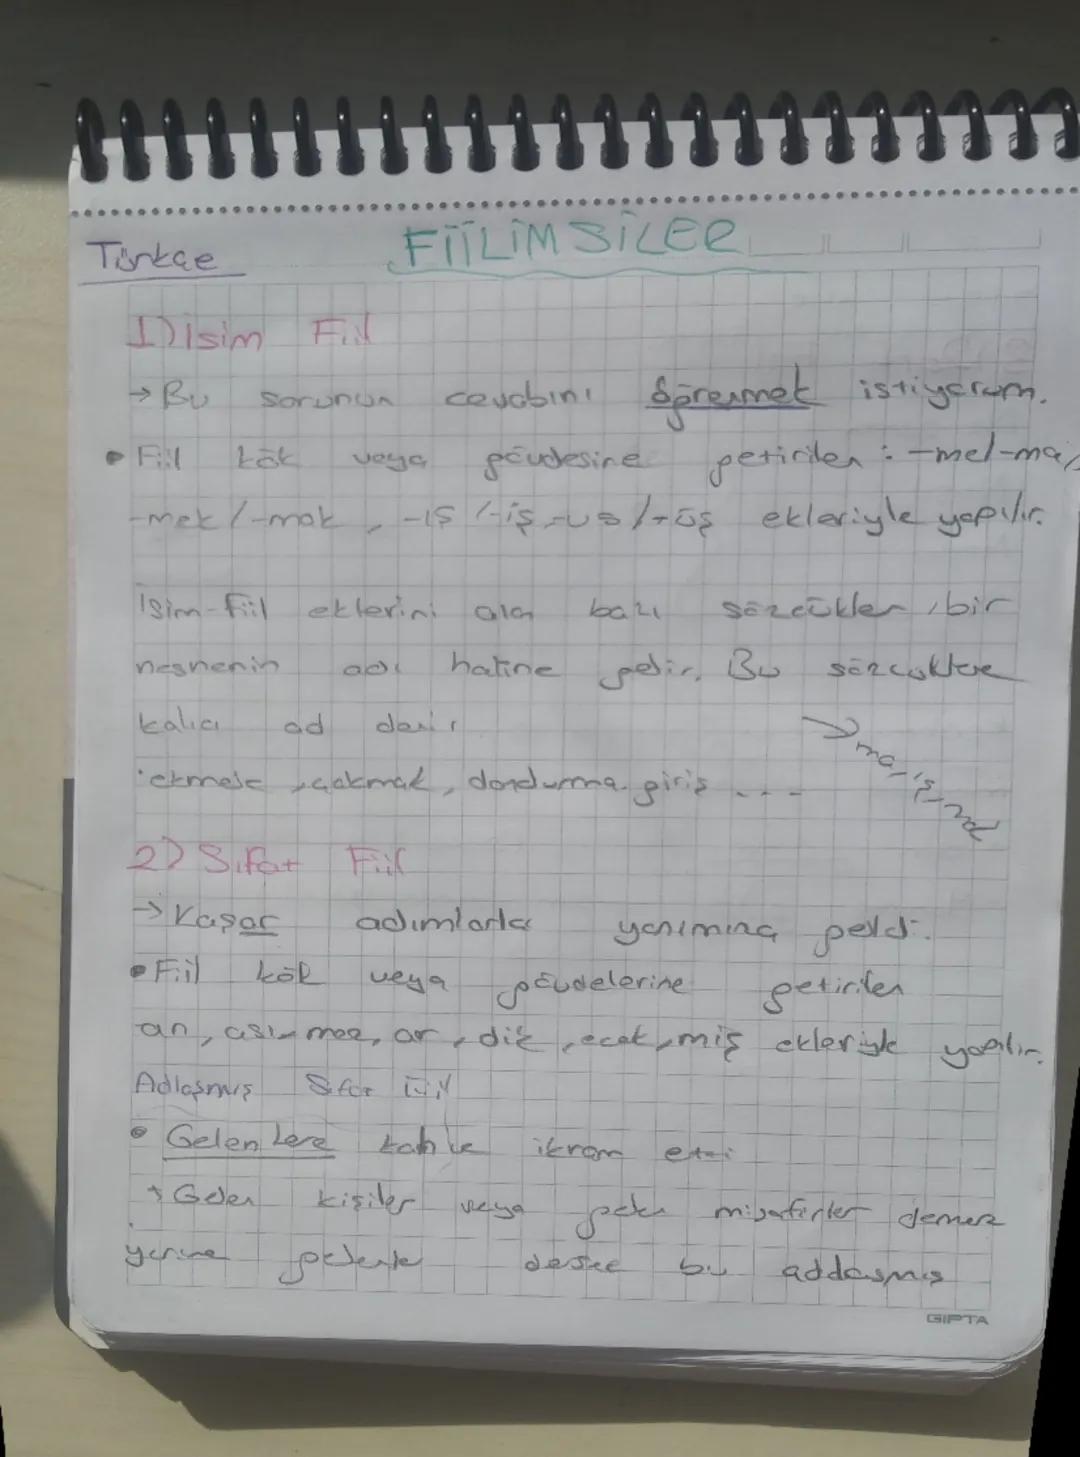 Türkçe
FİİLİMSİLER
1) isim Fiil
→ Bu sorunun cevabını öğrenmek istiyorum.
• Fiil kök veya gövdesine getirilen : -me/-ma,
-mek/-mak, -ış/-iş, -uş/-üş ekleriyle yapılır.
İsim-fiil eklerini alan bazı sözcükler, bir
nesnenin adı haline gelir. Bu sözcüklere
kalıcı ad denir
ekmek, çakmak, dondurma, giriş ...
ma, iş,
2) Sıfat Fiil
→ Kaşar adımlarla yanımıza geldi.
• Fiil kök veya gövdelerine getirilen
an, ası, mez, ar, dik, ecek, miş ekleriyle yapılır.
Adlaşmış Sıfat Fiil
• Gelenlere kahve ikram etti
→ Gelen kişiler veya gelen misafirler demek
yerine gelenler desek bu addaşmış
GIPTA